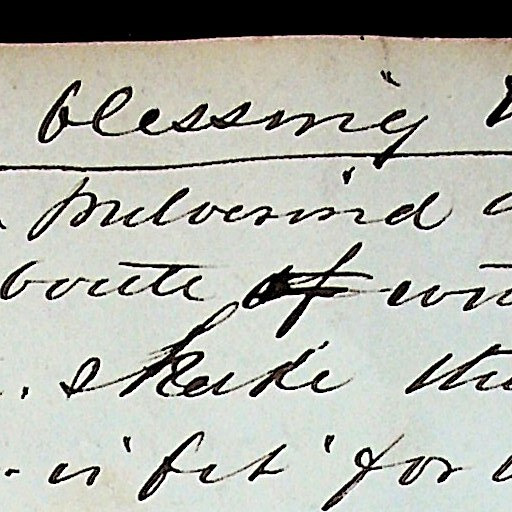 blessing
pulverind
boute of
. shake the
is fit for